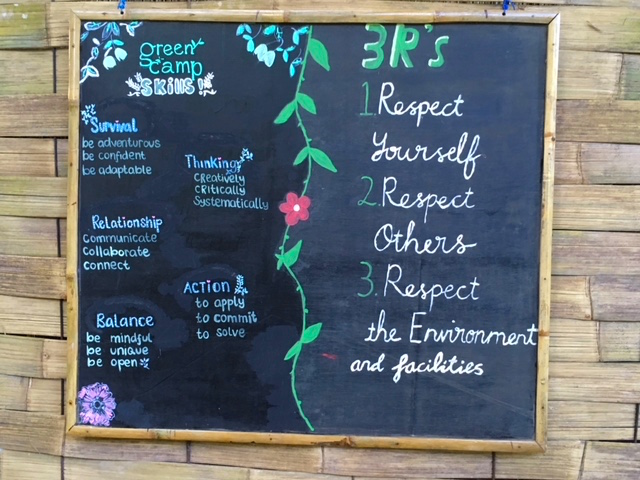 green
camp
SKills!
Survival
be adventurous
be confident
be adaptable
Thinking
creatively
critically
systematically
Relationship
communicate
collaborate
connect
ACTION
to apply
to commit
to solve
Balance
be mindful
be unique
be open
3R's
1. Respect
Yourself
2. Respect
Others
3. Respect
the Environment
and facilities